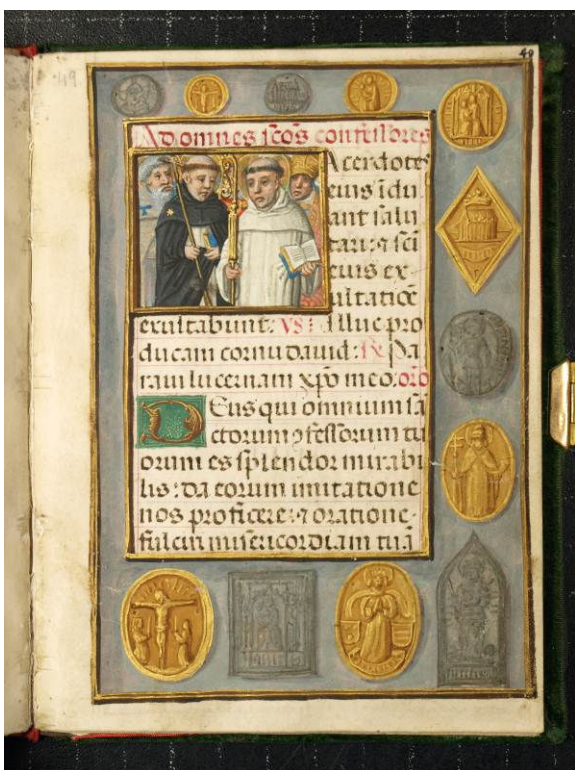 49
Ad omnes scōs confessores
Acerdotes
eius īdu
ant salu
tari: et sci
eius ex
ultatiōe
exultabunt: VS: Illuc pro
ducam cornu dauid: R Pa
raui lucernam xpō meo: orō
Deus qui omnium sā
ctorum ꝯfessorum tu
orum es splendor mirabi
lis: da eorum imitatione
nos proficere: et oratione
fulciri misericordiam tuā